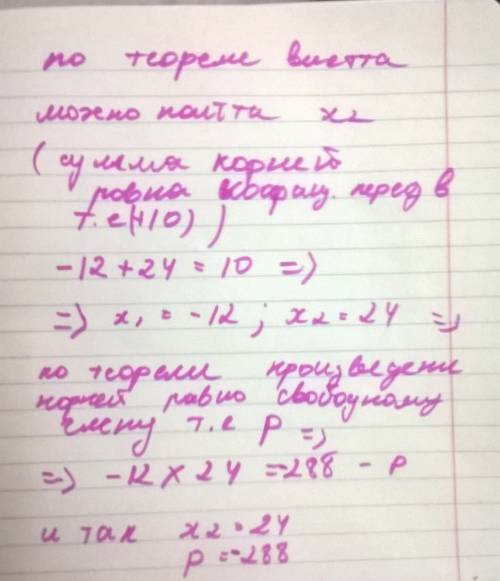 по теореме виетта
можно найти x2
(сумма корней
равна коэфиц. перед в
т.е (+10) )
-12 + 24 = 10 =>
=> x1 = -12 ; x2 = 24 =>
по теореме произведени
корней равно свободному
члену т.е p =>
=> -12 × 24 = -288 - p
и так x2 = 24
p = -288